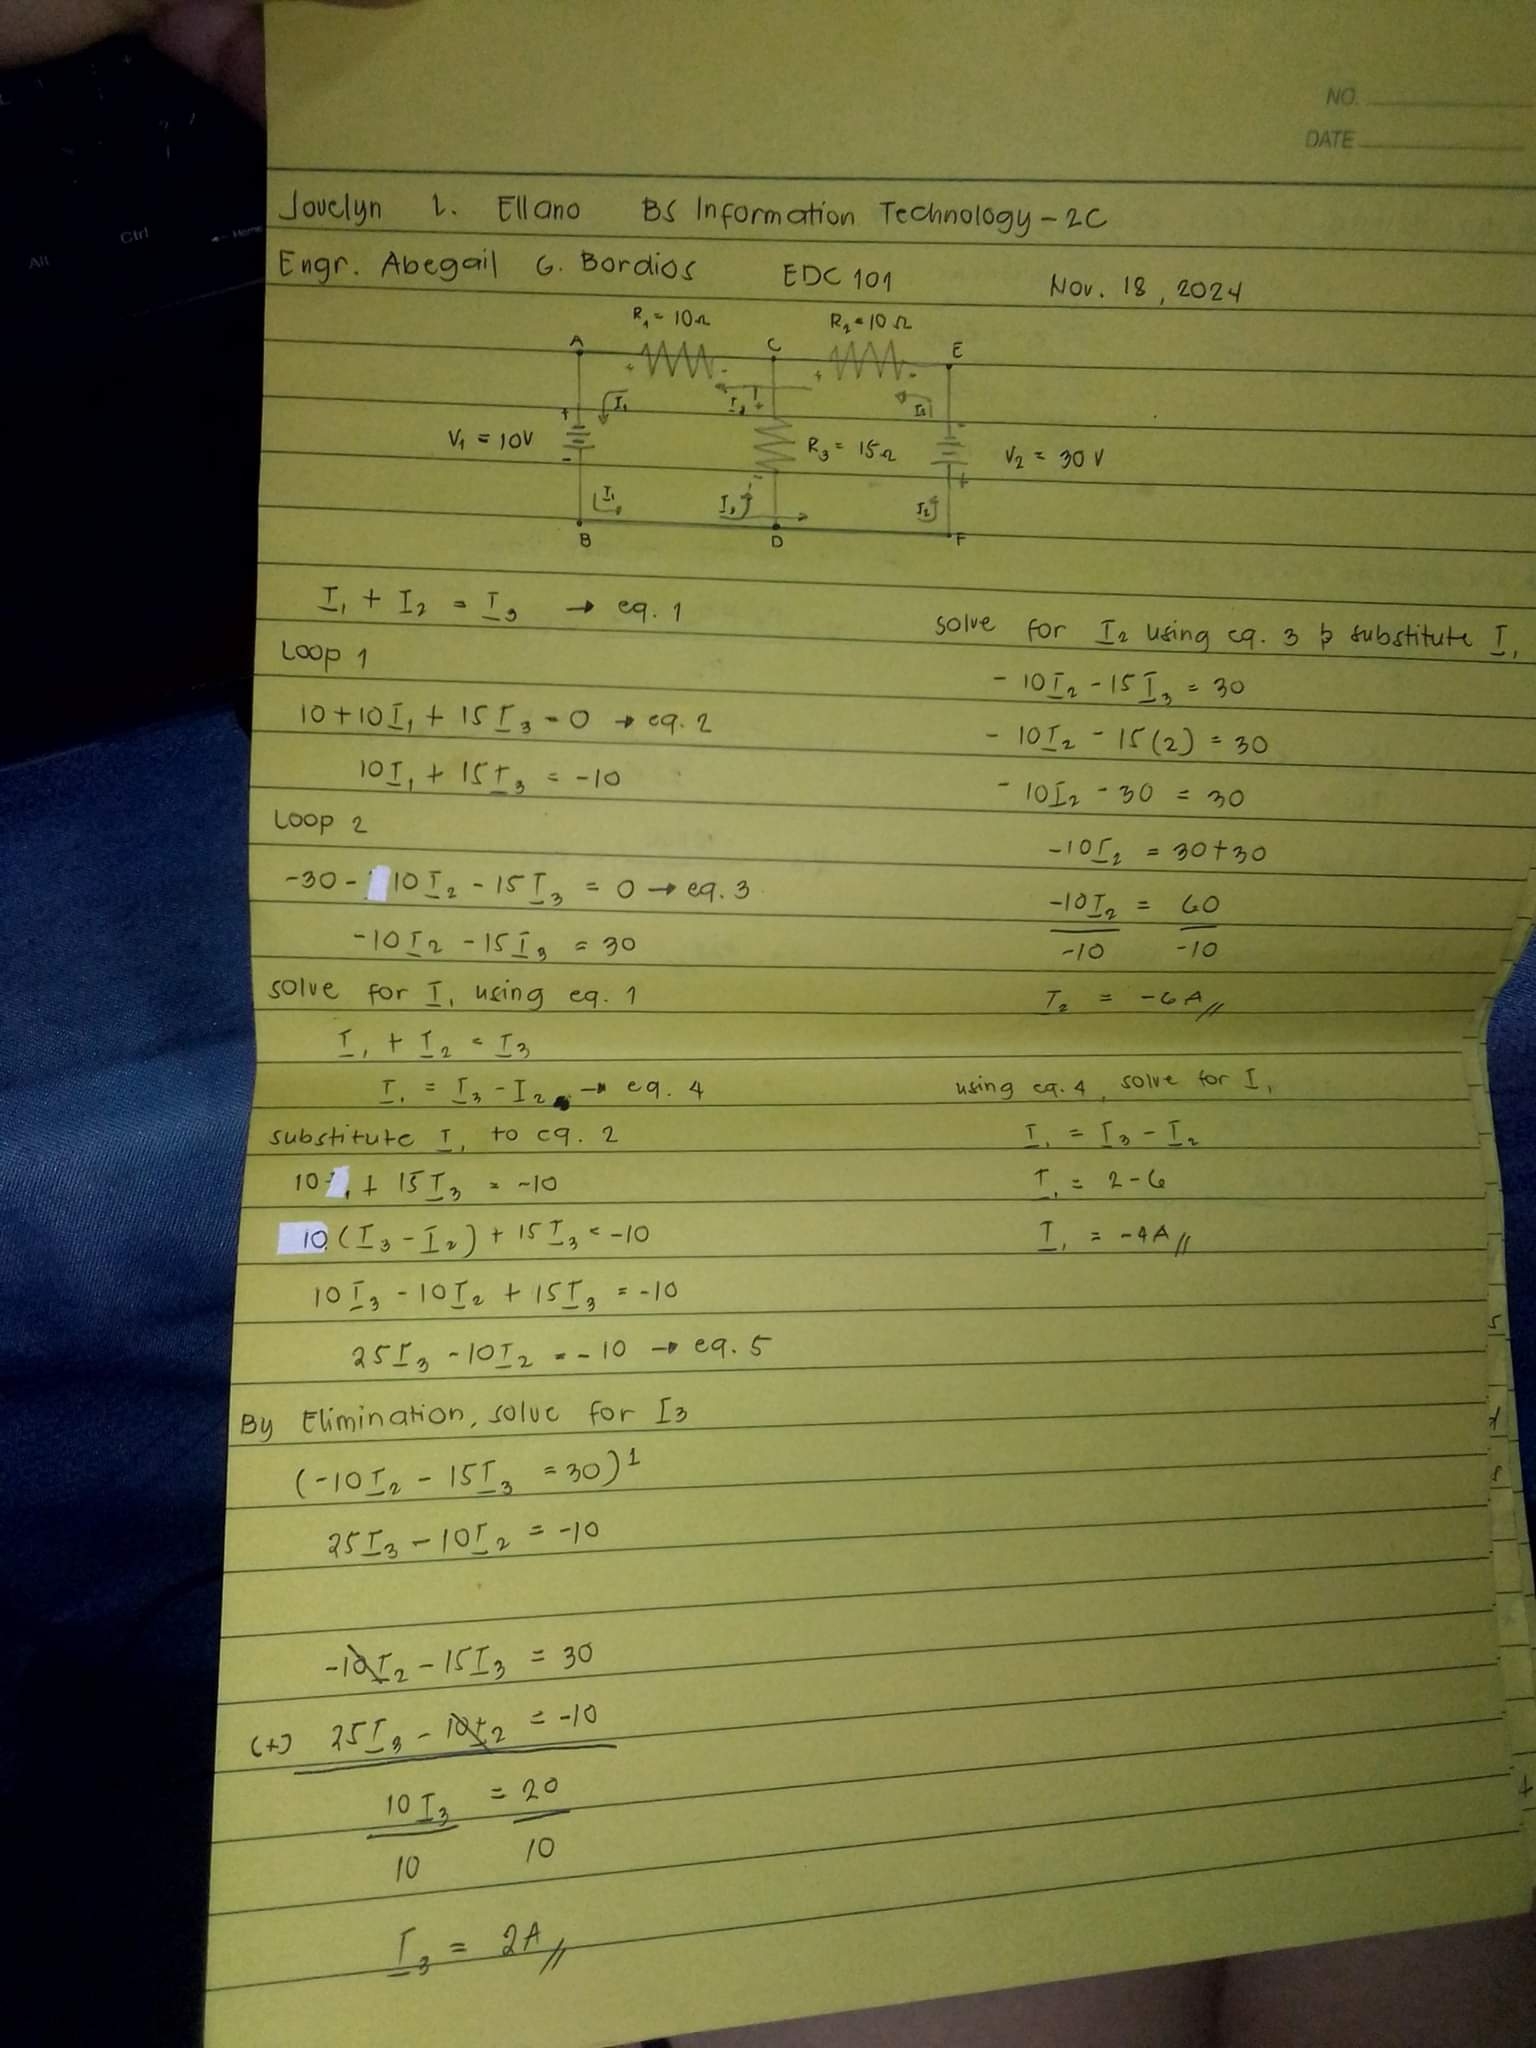 NO.
DATE
Jovelyn L. Ellano BS Information Technology - 2C
Engr. Abegail G. Bordios EDC 101 Nov. 18, 2024
R₁ = 10Ω R₂ = 10Ω
A C E
+ - + -
I₁ I₃ + I₂
V₁ = 10V + - R₃ = 15Ω V₂ = 30V - +
I₁ I₃ - I₂
B D F
I₁ + I₂ = I₃ → eq. 1
Loop 1
10 + 10I₁ + 15I₃ = 0 → eq. 2
10I₁ + 15I₃ = -10
Loop 2
-30 - 10I₂ - 15I₃ = 0 → eq. 3
-10I₂ - 15I₃ = 30
solve for I₁ using eq. 1
I₁ + I₂ = I₃
I₁ = I₃ - I₂ → eq. 4
substitute I₁ to eq. 2
10I₁ + 15I₃ = -10
10(I₃ - I₂) + 15I₃ = -10
10I₃ - 10I₂ + 15I₃ = -10
25I₃ - 10I₂ = -10 → eq. 5
By Elimination, solve for I₃
(-10I₂ - 15I₃ = 30)1
25I₃ - 10I₂ = -10
-10I₂ - 15I₃ = 30
(+) 25I₃ - 10I₂ = -10
10I₃ = 20
10 10
I₃ = 2A//
solve for I₂ using eq. 3 & substitute I₁
-10I₂ - 15I₃ = 30
-10I₂ - 15(2) = 30
-10I₂ - 30 = 30
-10I₂ = 30+30
-10I₂ = 60
-10 -10
I₂ = -6A//
using eq. 4, solve for I₁
I₁ = I₃ - I₂
I₁ = 2-6
I₁ = -4A//
Ctrl
Home